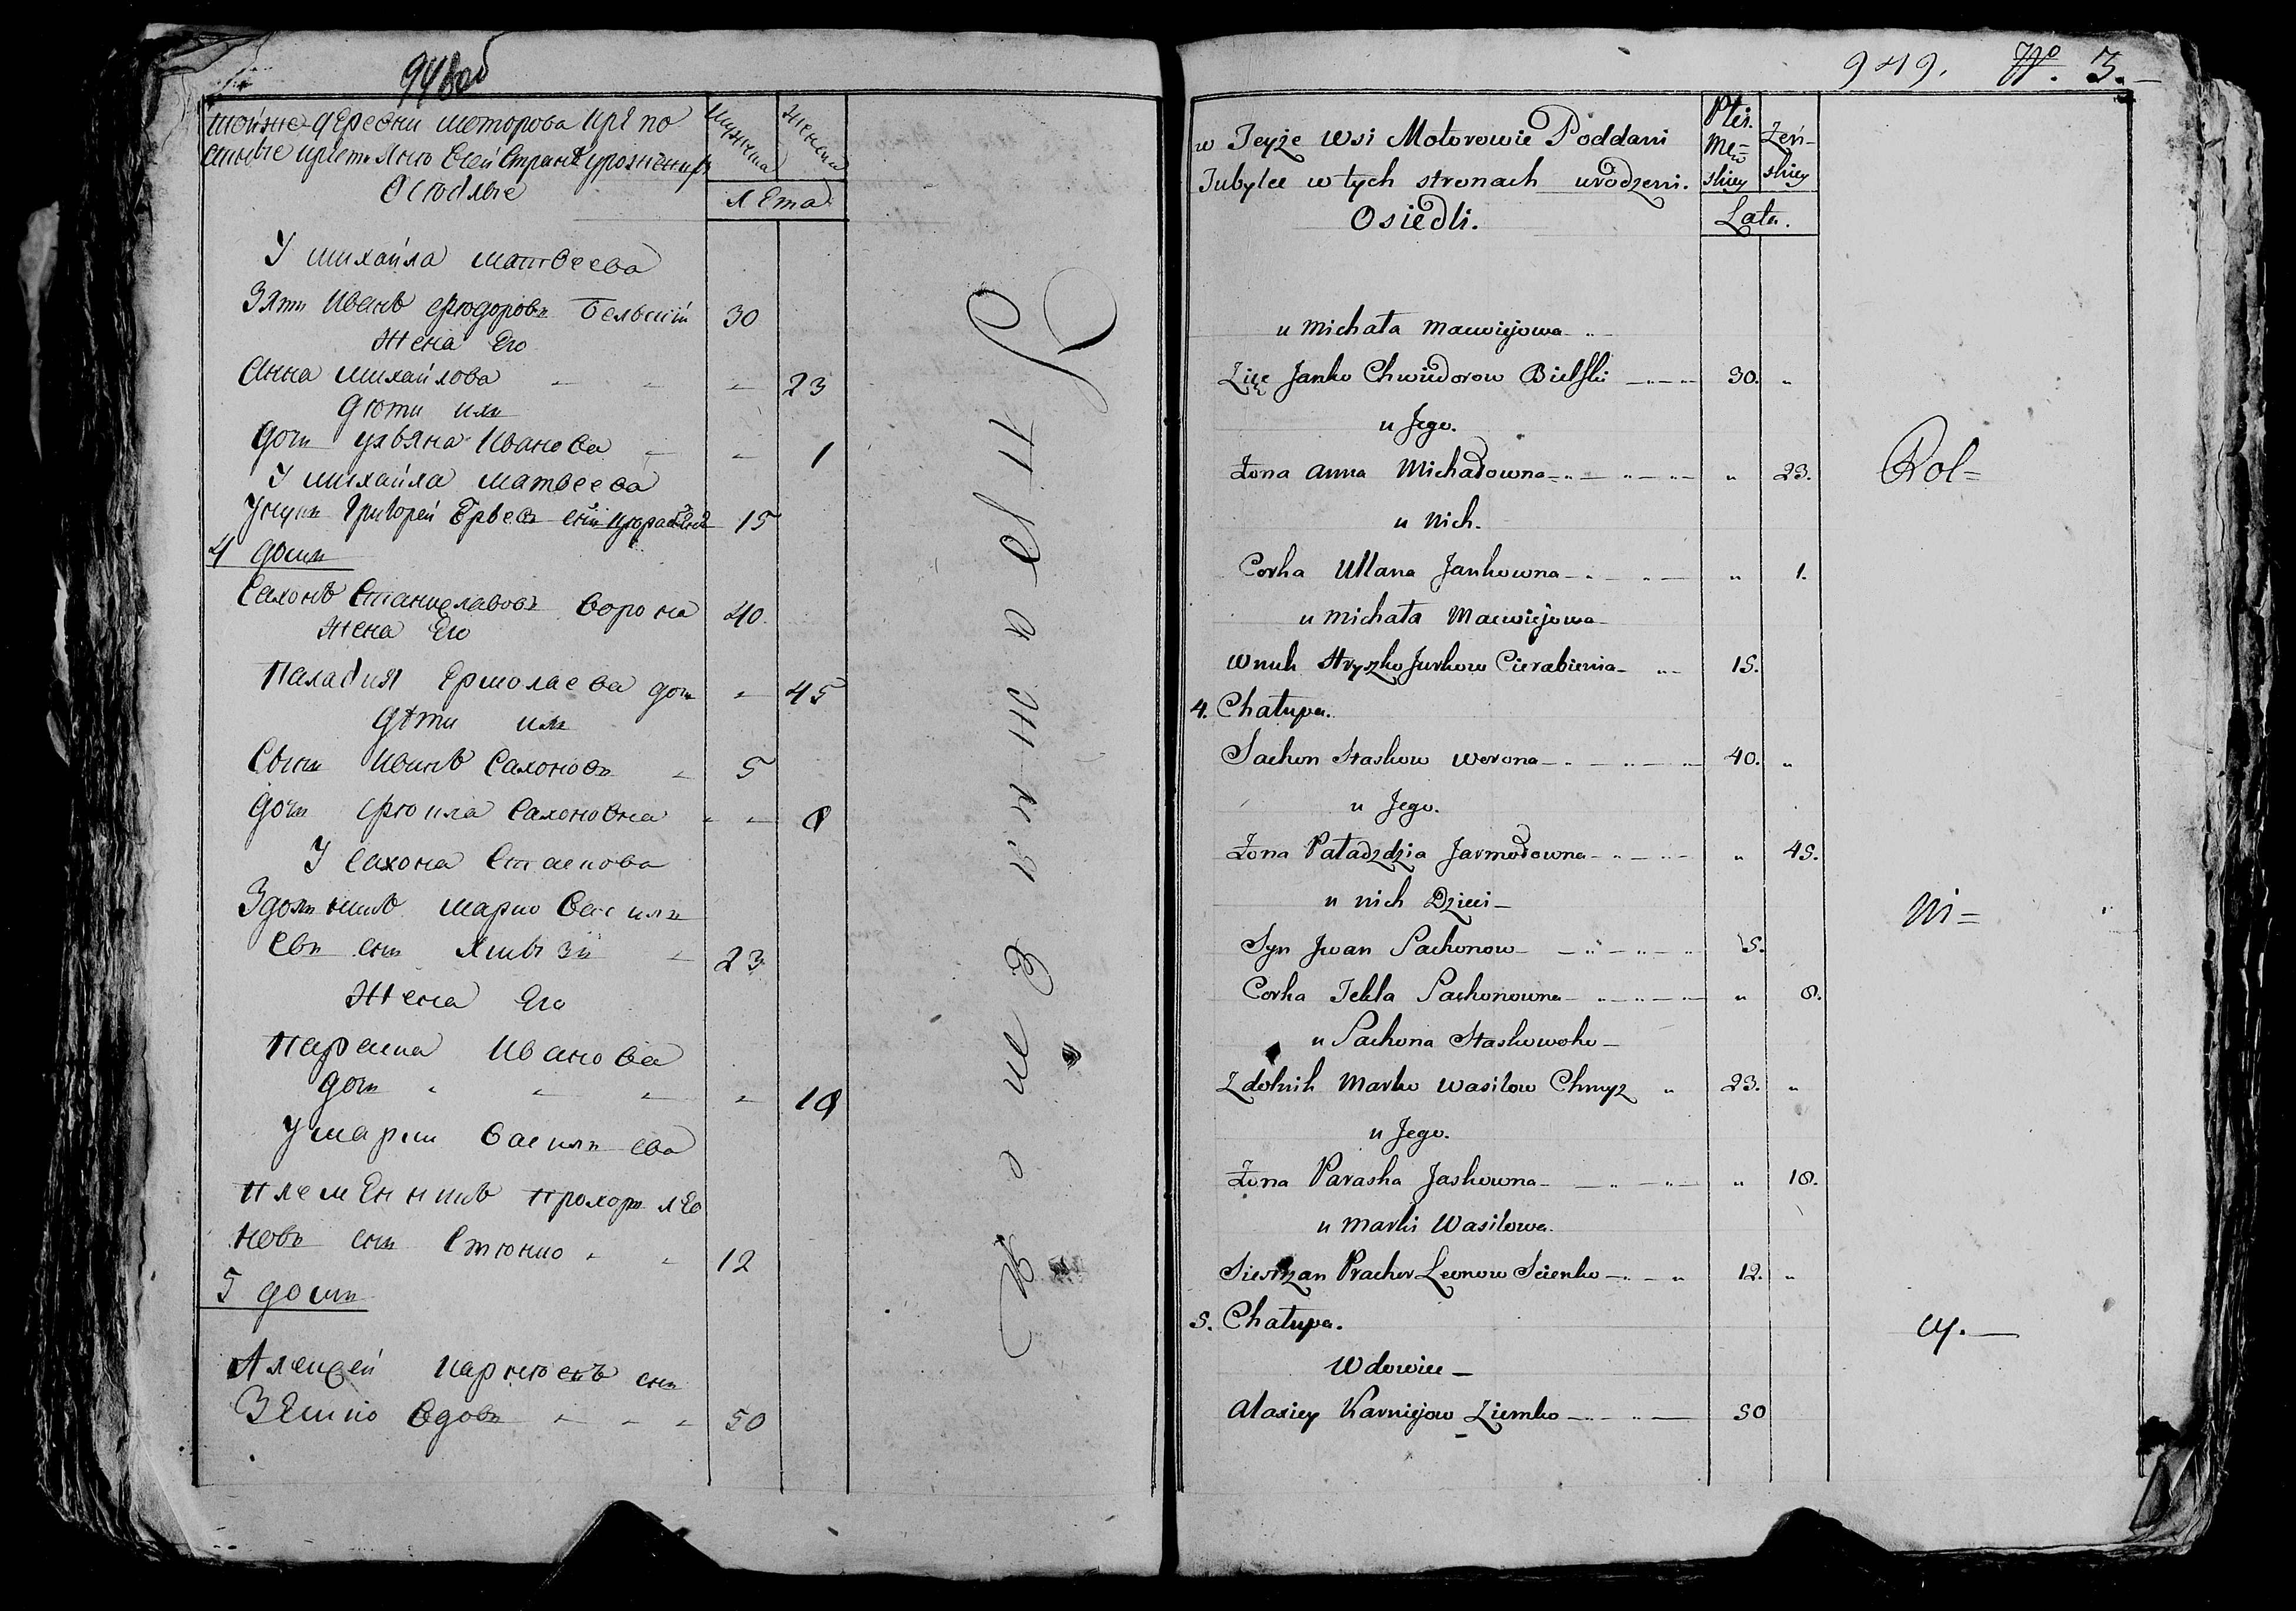 948 об
тойже деревни моторова кре по
стные крестьяно всей стране урожен
Оседлые
мужеска
женска
лета
У михайла матвеева
Зять Иванъ Фюдоровъ Бельский 30
жена Его
Анна михайлова - - - 23
дюти ихъ
дочь ульяна Иванова - - 1
У михайла матвеева
Унукъ Григорей 15
4 домъ
Сахонъ Станиславовъ ворона 40
жена Его
Паладия Ермолаева дочь - 45
дѣти ихъ
Сынъ Иванъ Сахоновъ - 5
дочь Сахоновна - - 8
У Сахона Стаскова
Здольникъ марко Василь
евъ сынъ - 23
жена Его
Параска Иванова
дочь - - - - 18
У марки Василь ева
племенникъ прохоръ лео
новъ сынъ Стюнко - - 12
5 домъ
Алексей карнюевъ сынъ
Земко вдовъ - - - 50
949. No. 3.
w Teyże wsi Motorowie Poddani
Tubylce w tych stronach urodzeni.
Osiedli.
Płci.
Mę=
skiey
Żeń-
skiey
Lata.
u Michała Maciejowa
Zięc Janko Chwiedorow Bielski 30. "
u Jego.
Żona Anna Michałowna " 23.
u Nich.
Corka Ullana Jankowna " 1.
u Michała Maciejowa
Wnuk Hryszko Jurkow Cierabienia 15.
4. Chałupa.
Sachon Staskow Worona 40. "
u Jego.
Żona Paładzdzia Jarmołowna " 45.
u nich Dzieci
Syn Jwan Sachonow 5.
Corka Tekla Sachonowna " 8.
u Sachona Staskowoho
Zdolnik Marko Wasilow Chmyz " 23. "
u Jego.
Żona Paraska Jaskowna " 18.
u Marki Wasilowa.
Siestrzan Prachor Leonow Scienko " 12. "
5. Chałupa.
Wdowiec
Alaxiey Karniejow Ziemko 50
Rol=
ni=
cy.